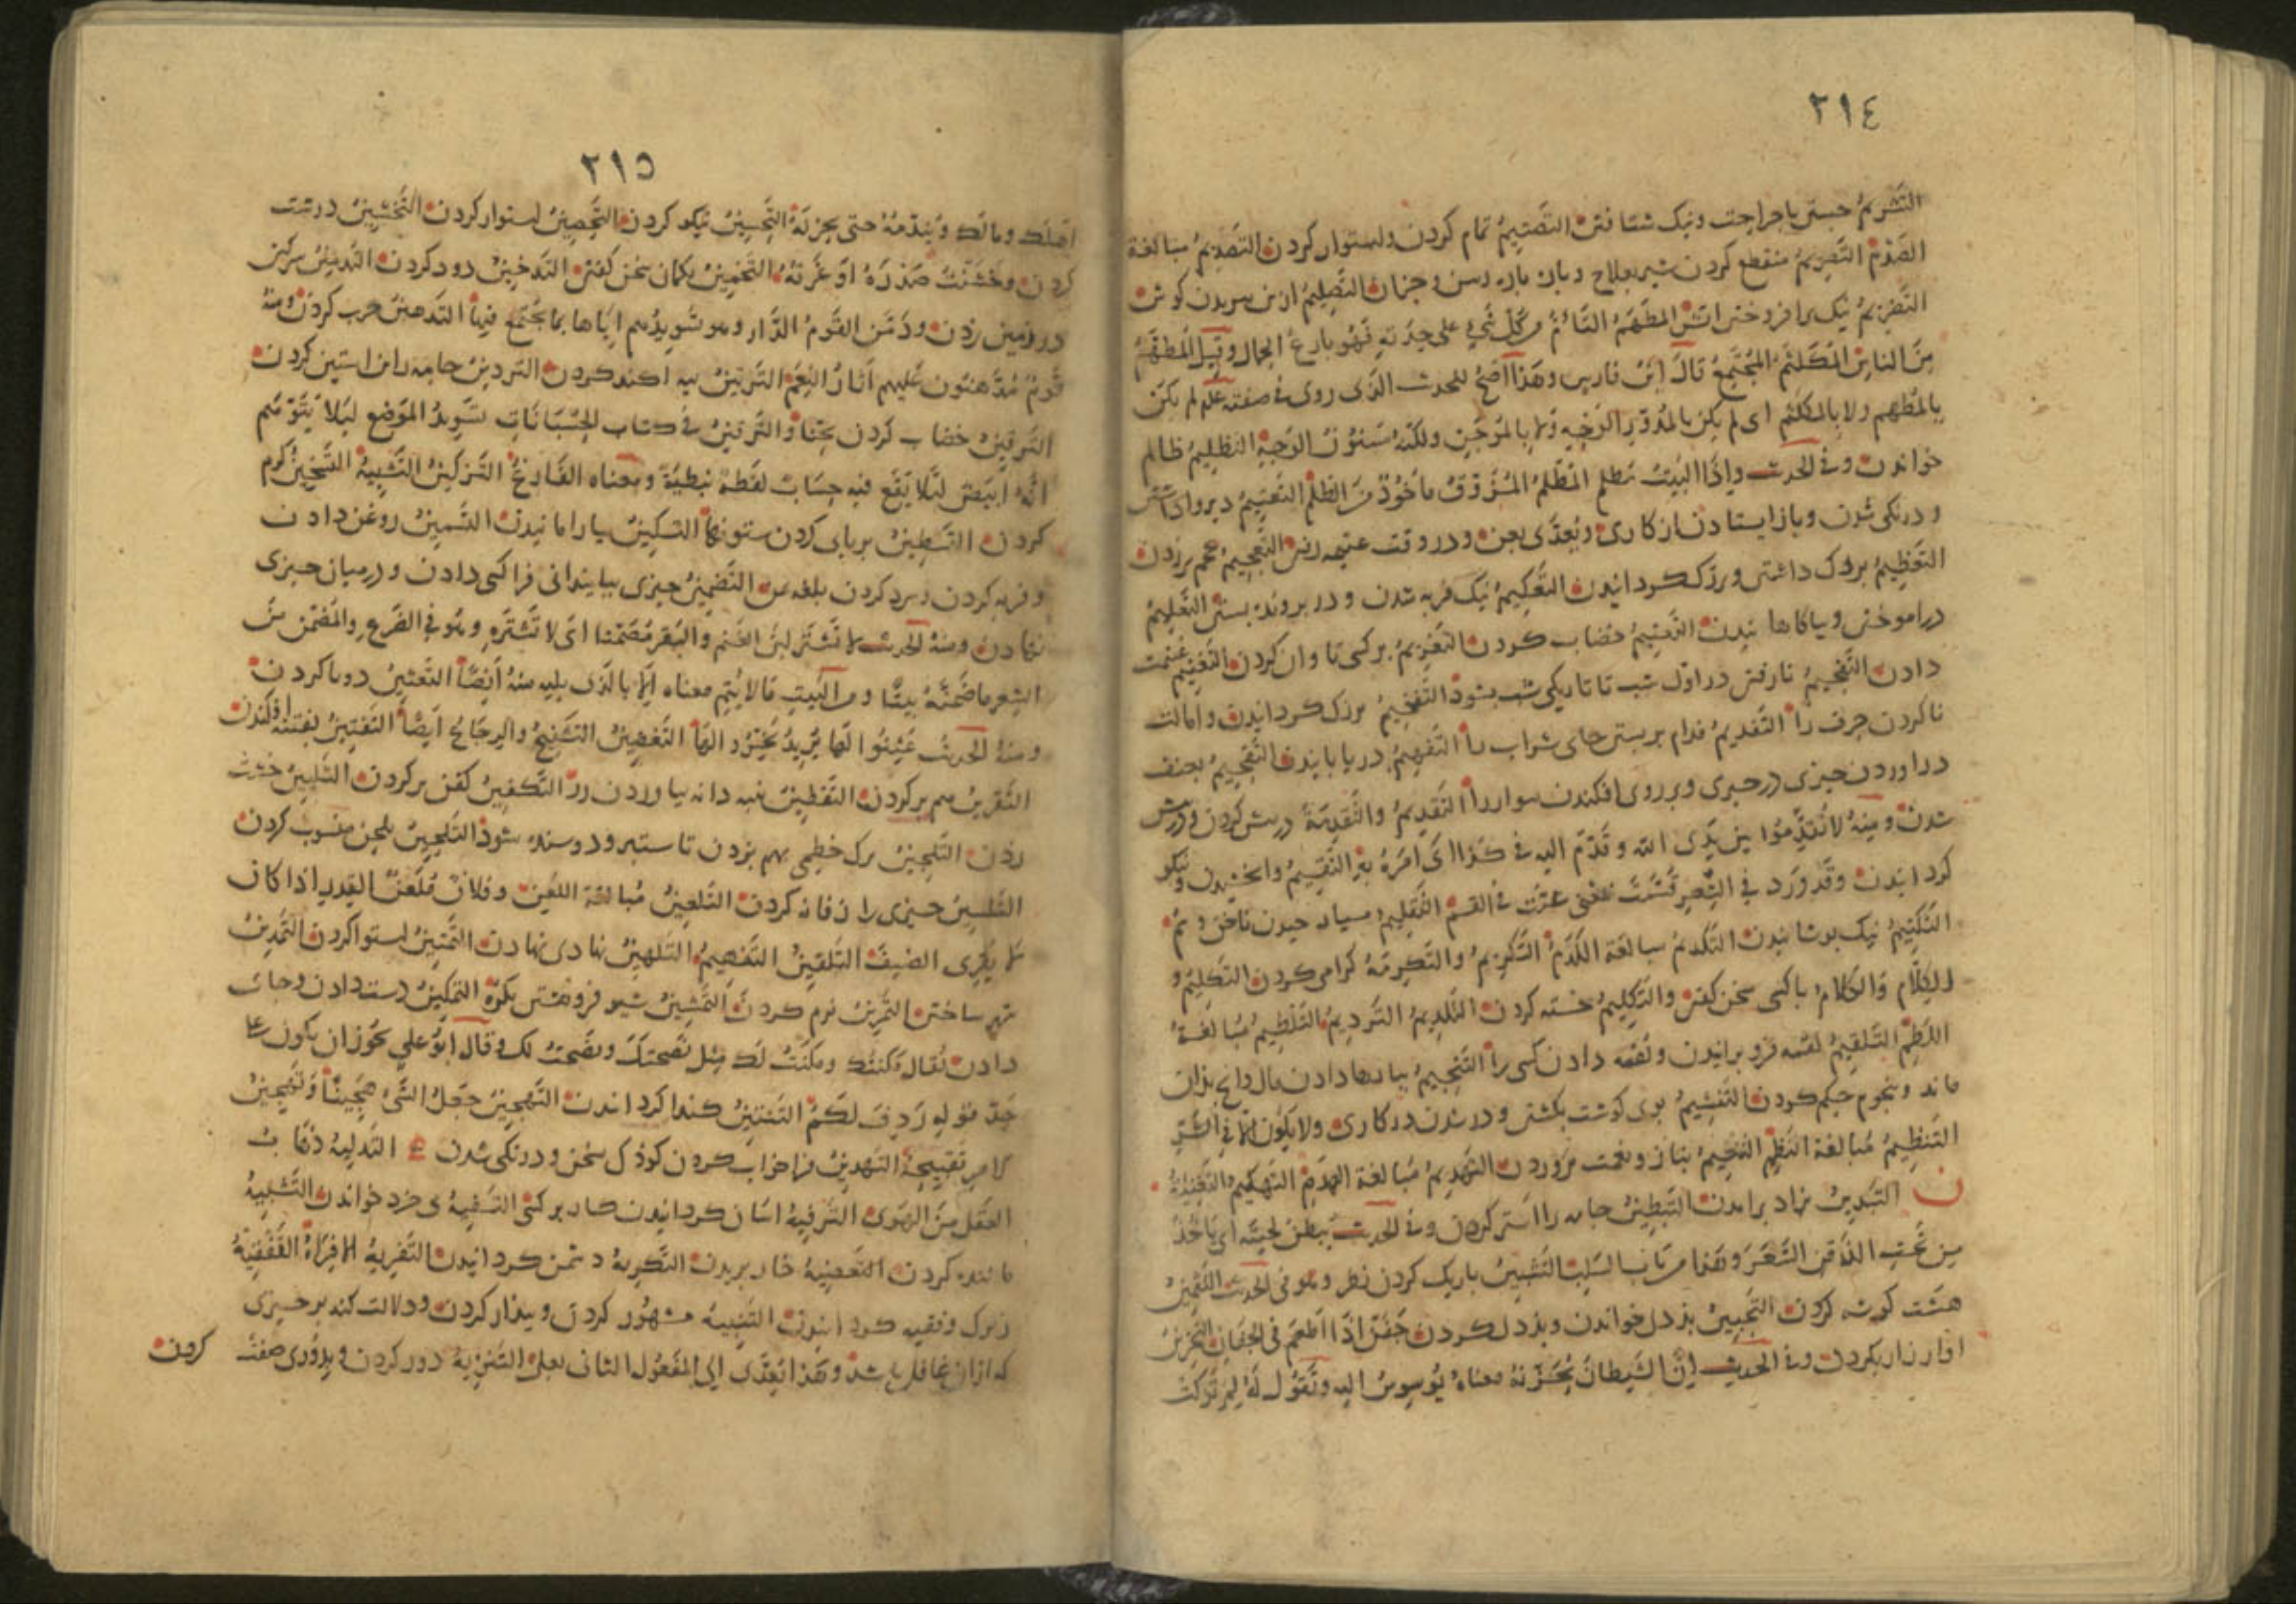 ٢١٤
التشريم خستن با جراحت ونیک شتافتن التصتيم تمام كردن ولستوار كردن التصديم مبالغة
الصدم التصريم منقطع كردن شير بعلاج وبان باره رسن وجزان التصليم از بن بريدن كوش
التضريم نیک برافروختن اتش المطهم التام كل شيء على حدته فهو بارع الجمال وقيل المطهم
من الناس المكلثم المجتمع قال ابن فارس وهذا اصح للحدث الذي روى في صفته علم لم يكن
بالمطهم ولا بالمكلثم اى لم يكن بالمدور الوجه ولا بالموجن ولكنه مسنون الوجه التظليم ظالم
خواندن وفي الحدث واذا البيت مظلم المظلم المزوق ماخوذ من الظلم التعتيم دير داشتن
ودرنكى شدن وباز ايستادن از كارى ويعدى بعن ودر وقت عتمه رفتن التعجيم عجم بر زدن
التعظيم بزرك داشتن وبزرك كردانيدن التعكيم نیک فربه شدن ودر بروند بستن التعليم
دراموختن وبياكاهانيدن التعنيم خضاب كردن التغريم بر كسى تاوان كردن التغنيم غنيمت
دادن التفحيم نارفتن در اول شب تا تاريكى شب بشود التفخيم بزرك كردانيدن وامالت
ناكردن حرف را التفديم فدام بربستن جاى شراب را التفهيم دريابانيدن التقحيم بعنف
دراوردن چيزى در چيزى وبر روى افكندن سوار را التقديم والتقدمة در پيش كردن ودر پيش
شدن ومنه لا تقدموا بين يدى الله وقدم اليه في كذا اى امره به التقسيم وابخشيدن ونيكو
كردانيدن وقد ورد في الشعر قسمت بمعنى عزت في القسم التقليم بسيار چيدن ناخن وثم
التكتيم نیک بوشانيدن التكديم مبالغة الكدم التكريم والتكرمة كرامى كردن التكليم و
الكلام والكلام با كسى سخن كفتن والتكليم خسته كردن التلديم الترديم التلطيم مبالغة
اللطم التلقيم لقمه فرو برانيدن ولقمه دادن كسى را التنجيم ببارها دادن مال وانچ بدان
ماند وبنجوم حكم كردن التنشيم بوى كوشت بكشتن ودر شدن در كارى ولا يكون الا في الشر
التنظيم مبالغة النظم التنعيم بناز ونعمت پروردن التهديم مبالغة الهدم التهكيم التغنية
ن التبدين بزاد برامدن التبطين جامه را استر كردن وفي الحدث يبطن لحيته اى ياخذ
من تحت الذقن الشعر وهذا من باب السلب التتبين باريك كردن نظر وهو في الحديث التثمين
هشت كوشه كردن التجبين بذدل خواندن وبذدل كردن جفن اذا اطعم في الجفان التحزين
اواز زار بكردن وفي الحديث ان الشيطان يحزنه معناه يوسوس اليه ويقول له لم تركت
٢١٥
اهلك ومالك ويندمه حتى يحزنه التحسين نيكو كردن التحصين استوار كردن التخشين درشت
كردن وخشنت صدره اوغرته التخمين بكمان سخن كفتن التدخين دود كردن التدمين سركين
در زمين زدن ودمن القوم الدار وهو تسويدهم اياها بما يجتمع فيها التدهين چرب كردن ومنه
قوم مدهنون عليهم اثار النعم التربين اكند كردن التردين جامه را استين كردن
الترقين خضاب كردن بحنا والترقين في كتاب الحسبانات تسويد الموضع ليلا يتوهم
انه ابيض ليلا يقع فيه حساب لفظة نبطية ومعناه الفارغ التزكين التشبيه التسخين كرم
كردن التسطين برپاى كردن ستونها التسكين بيارامانيدن التسمين روغن دادن
وفربه كردن وسرد كردن بلغه التضمين چيزى ببايندانى فرا كسى دادن ودر ميان چيزى
نهادن ومنه الحديث لا تشتر لبن الغنم والبقر مضمنا اى لا تشتره وهو في الضرع والمضمن من
الشعر ما ضمنته بيتا ومن البيت ما لا يتم معناه الا بالذى يليه منه ايضا التعثين دودناك كردن
ومنه الحديث عثنوا لها يريد بخروا لها التغضين التشنيج والرجايح ايضا التفتين بفتنه افكندن
التقرين بهم بر كردن التقطين پنبه دانه بياوردن رز التكفين كفن بر كردن التلبين خشت
زدن التلجين برك خطمى بهم بزدن تا ستبر ودوسنده شود التلحين بلحن منسوب كردن
التلسين چيزى را زفانه كردن التلعين مبالغة اللعن وفلان ملعن القدر اذا كان
لا يقرى الضيف التلقين التفهيم التلهين نهارى نهادن التمتين استوار كردن التمدين
شهر ساختن التمرين نرم كردن التمشين فروهشتن بكره التمكين دست دادن وجاى
دادن يقال مكنتك ومكنت لك مثل نصحتك ونصحت لك وقال ابو علي يجوز ان يكون على
حد قوله ردف لكم التنتين كندا كردانيدن التهجين جعل الشي هجينا وتهجين
الامر تقبيحه التهدين فرا خواب كردن كوذك بسخن ودرنكى شدن ه التدليه ذهاب
العقل من الهوى الترفيه اسان كردانيدن كار بر كسى التسفيه بى خرد خواندن التشبيه
ماننده كردن التعضيه خار بريدن التكريه دشمن كردانيدن التفريه الافراه التفقيه
زيرك وفقيه كردانيدن التنبيه مشهور كردن وبيدار كردن ودلالت كند بر چيزى
كه ازان غافل باشد وهذا يعدى الى المفعول الثانى بعلى التنزيه دور كردن وبدورى صفت
كردن